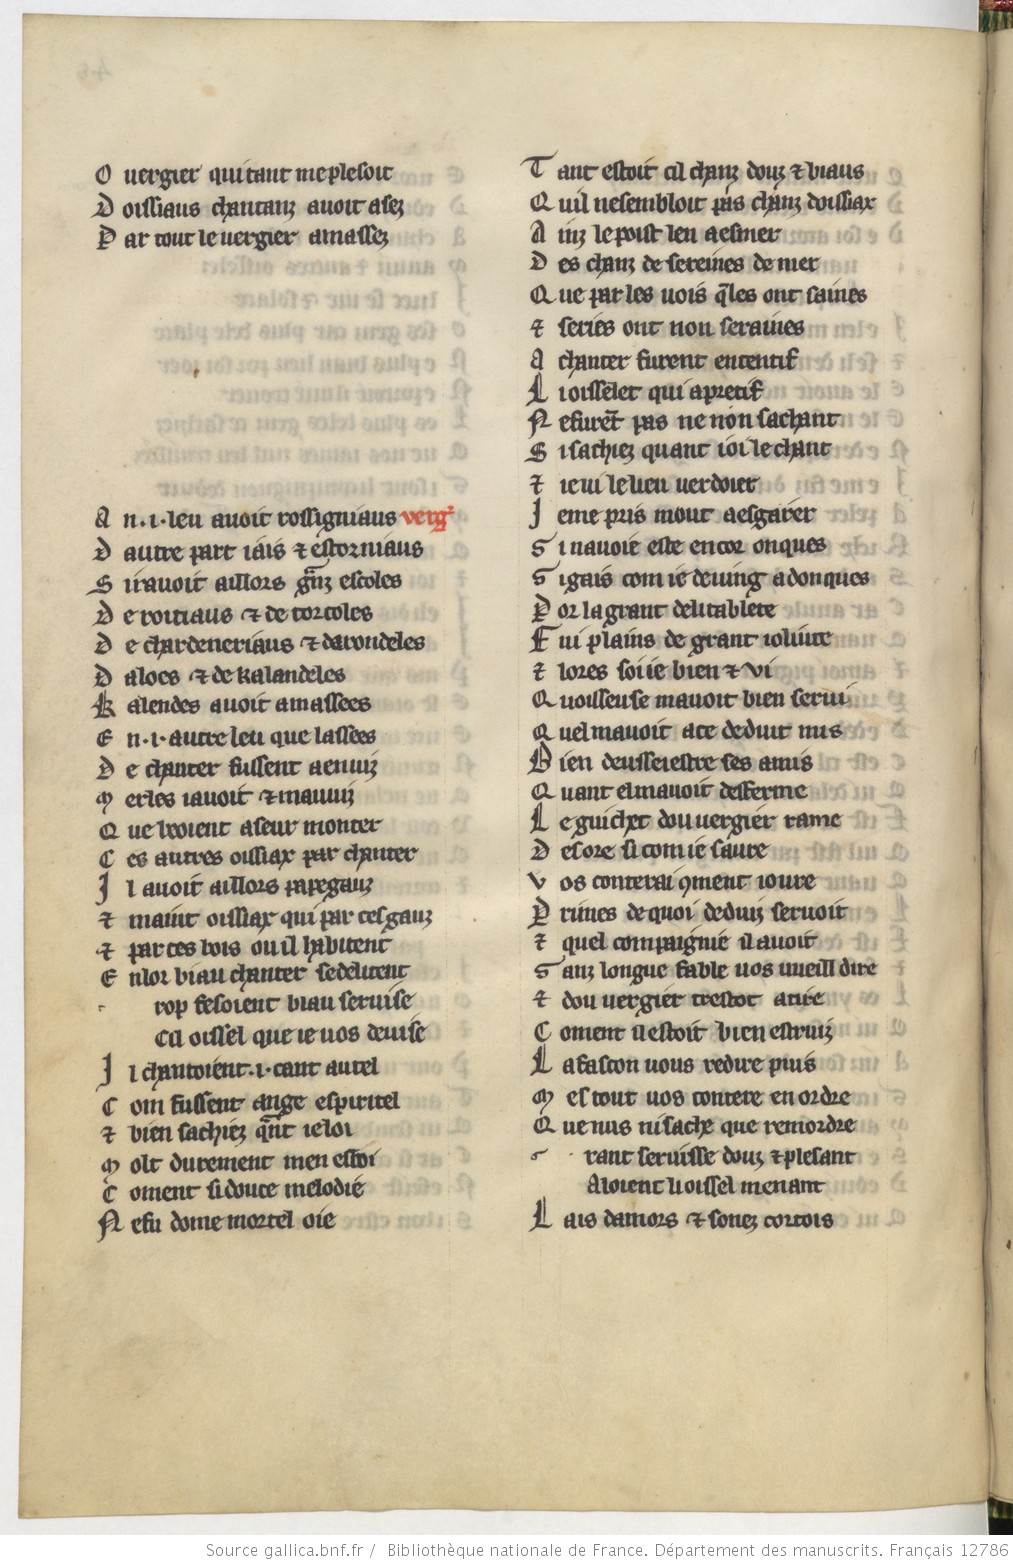 O uergier qui tant me plesoit
D oissiaus chantanz auoit asez
P ar tout le uergier amassez
A n .i. leu auoit rossigniaus verg
D autre part iais ⁊ estorniaus
S i rauoit aillors gñz escoles
D e roitiaus ⁊ de torcoles
D e chardeneriaus ⁊ darondeles
D aloes ⁊ de kalandeles
K alendes auoit amassees
E n .i. autre leu que lassees
D e chanter fussent a enuiz
M erles i auoit ⁊ mauuiz
Q ue beoient a seur monter
C es autres oissiax par chanter
I l auoit aillors papegauz
⁊ maint oissiax qui par ces gauz
⁊ par ces bois ou il habitent
E n lor biau chanter se delitent
rop fesoient biau seruise
Cil oissel que ie uos deuise
I l chantoient .i. cant autel
C om fussent ange espiritel
⁊ bien sachiez qñt ie loi
M olt durement men esioi
C oment si douce melodie
N e fu dome mortel oie
T ant estoit cil chanz douz ⁊ biaus
Q uil ne sembloit pas chanz doissiax
A inz le poist len aesmer
D es chanz de sereines de mer
Q ue par les uois q̃les ont saines
⁊ series ont non seraines
A chanter furent ententif
L i oisselet qui apretif
N e furēt pas ne non sachant
S i sachiez quant i oi le chant
⁊ ie ui le lieu uerdoier
I e me pris mout a esgarer
S i n auoie este encor onques
S i gais com ie deuing adonques
P or la grant delitablete
F ui plains de grant ioliuite
⁊ lores soi ie bien ⁊ vi
Q uoisseuse mauoit bien serui
Q uel mauoit a ce deduit mis
B ien deusse iestre ses amis
Q uant el mauoit desferme
L e guichet dou uergier rame
D esore si com ie saure
V os conterai 9ment i oure
P rimes de quoi deduiz seruoit
⁊ quel compaignie il auoit
S anz longue fable uos uueill dire
⁊ dou uergier trestot a tire
C oment il estoit bien estruiz
L a fascon uous redire puis
M es tout uos contere en ordre
Q ue nus ni sache que remordre
rant seruisse douz ⁊ plesant
Aloient li oissel menant
L ais damors ⁊ sonez cortois
Source gallica.bnf.fr / Bibliothèque nationale de France. Département des manuscrits. Français 12786